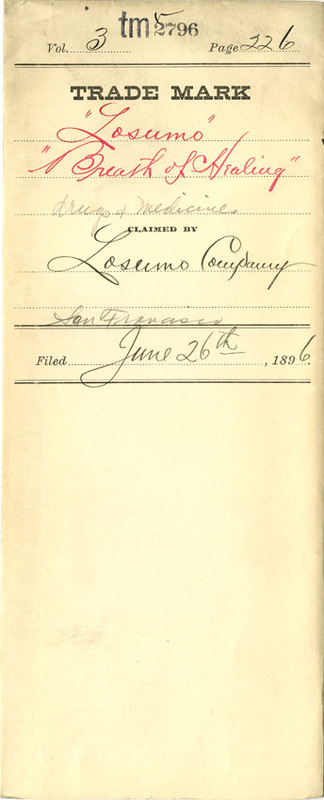 tm 2796
Vol. 3 Page 226
TRADE MARK
"Losumo"
"A Breath of Healing"
drugs & medicine
CLAIMED BY
Losumo Company
San Francisco
Filed June 26th, 1896.